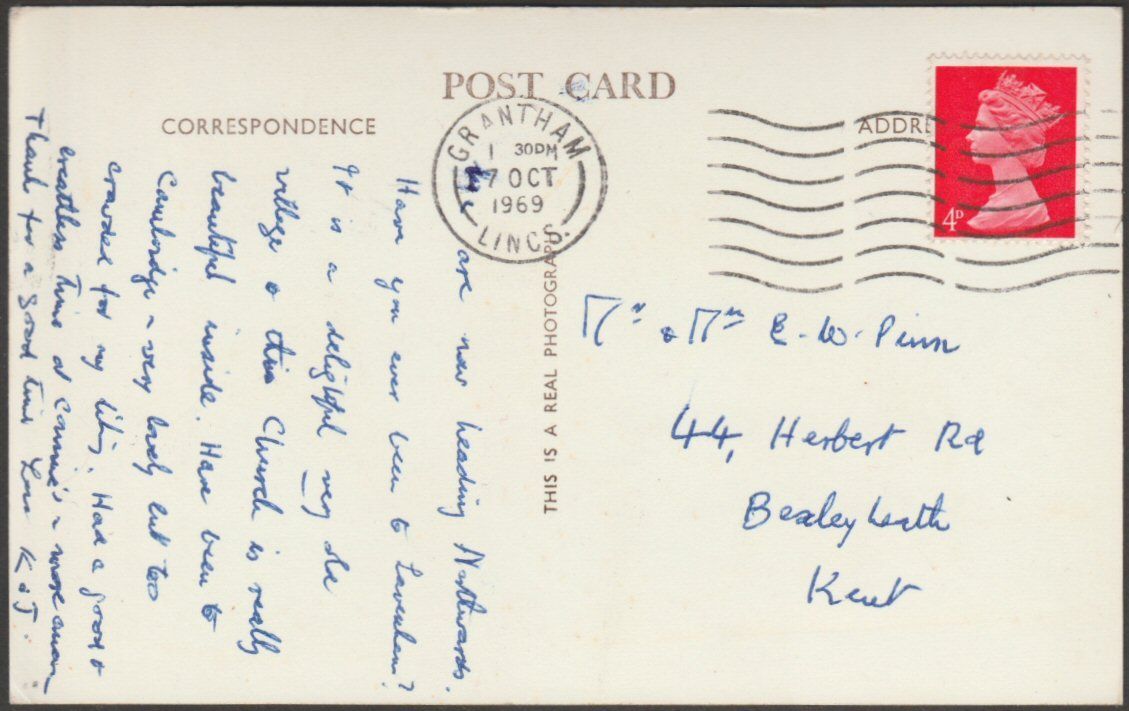 POST CARD
CORRESPONDENCE
ADDRE
GRANTHAM
1 30PM
7 OCT
1969
LINCS.
4D
THIS IS A REAL PHOTOGRAPH
We are now heading Northwards.
Have you ever been to Lavenham?
It is a delightful very old
village & this Church is really
beautiful inside. Have been to
Cambridge ~ very lovely but too
crowded for my liking. Had a good &
breathless time at Connie's ~ more anon ~
Thanks for a good time Love K & J.
Mr & Mrs E. W. Pinn
44, Herbert Rd
Bexleyheath
Kent